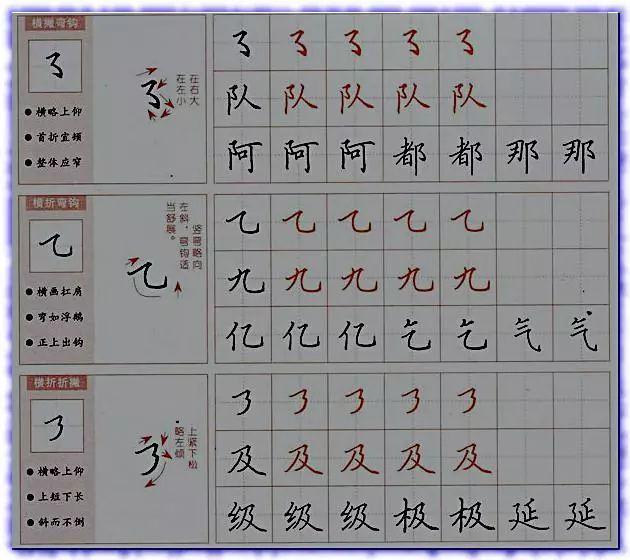 横撇弯钩
横略上仰
首折宜倾
整体应窄
在右大
在左小
队 队 队 队 队
阿 阿 阿 都 都 那 那
横折弯钩
乙
横画扛肩
弯如浮鹅
正上出钩
竖弯略向
左斜,弯钩适
当舒展。
乙
乙 乙 乙 乙 乙
九 九 九 九 九
亿 亿 亿 乞 乞 气 气
横折折撇
横略上仰
上短下长
斜而不倒
上紧下松
略左倾
及 及 及 及 及
级 级 级 极 极 延 延